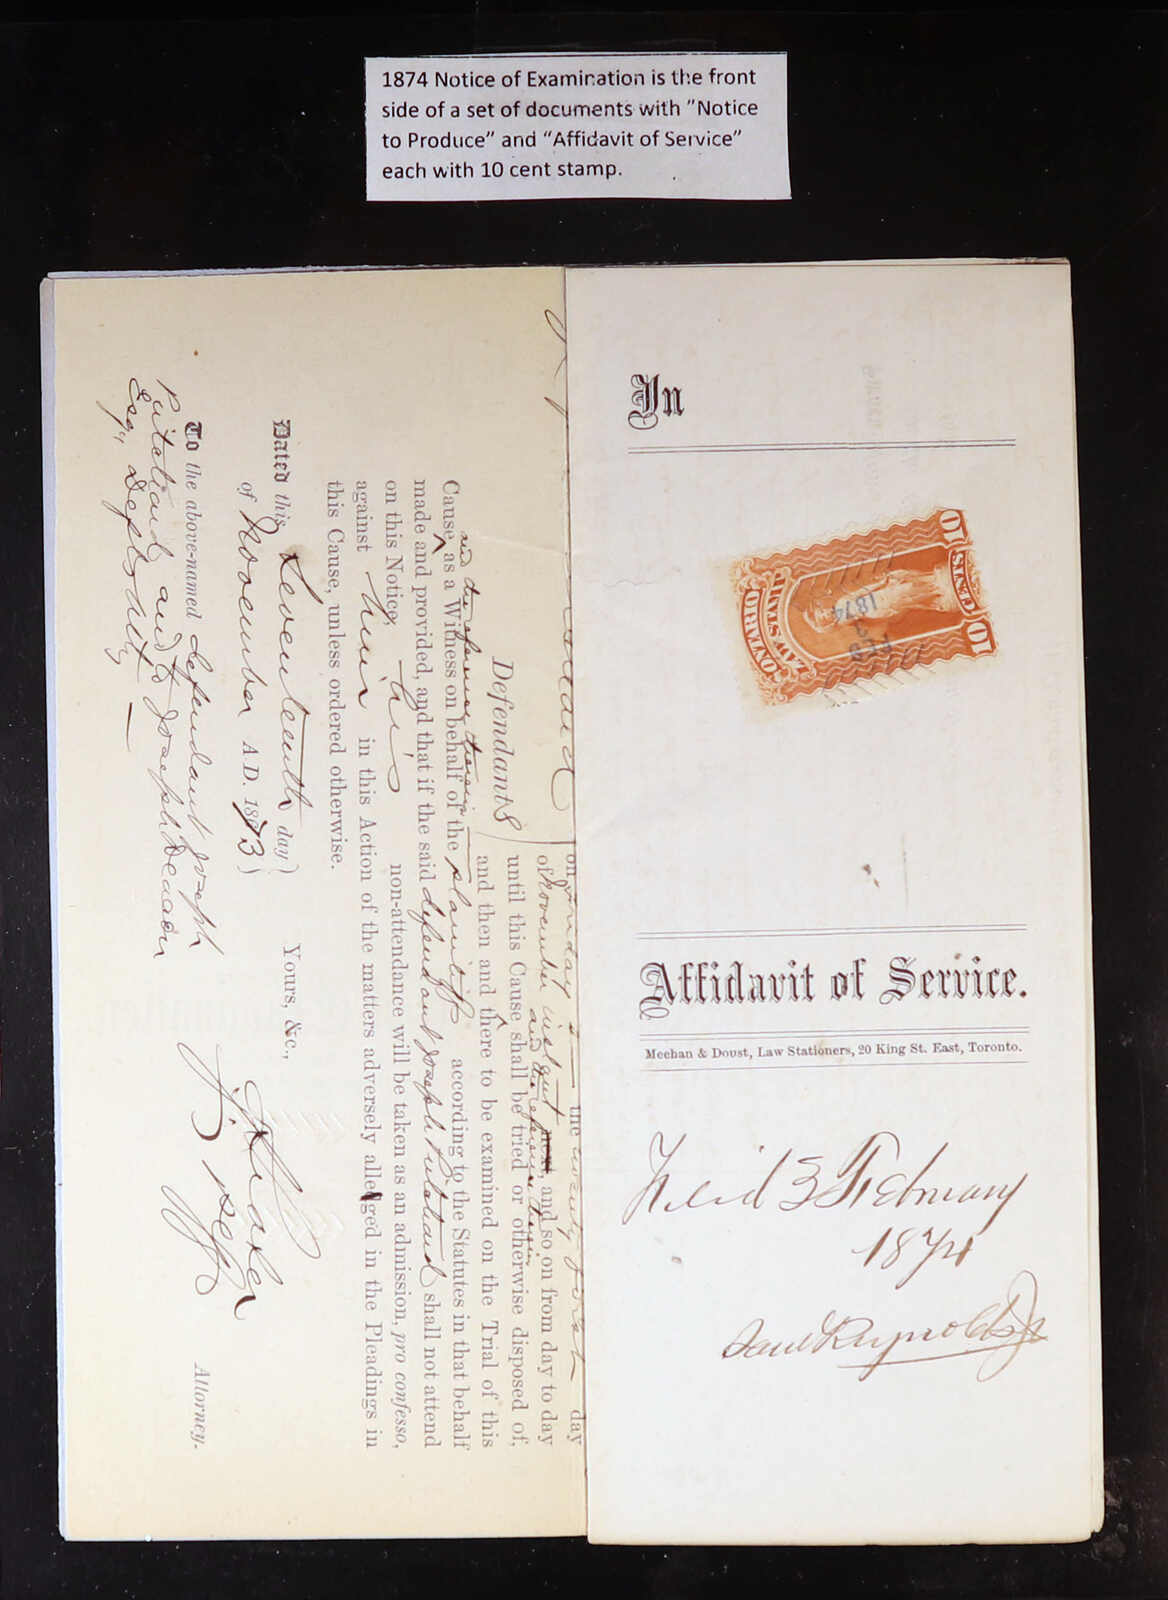 1874 Notice of Examination is the front
side of a set of documents with "Notice
to Produce" and "Affidavit of Service"
each with 10 cent stamp.
In
10 STAMP 10
ONTARIO
LAW STAMP
FEB
1874
Affidavit of Service.
Meehan & Doust, Law Stationers, 20 King St. East, Toronto.
Filed 3 February
1874
Reynolds
on the twenty first day
of November instant next, and so on from day to day
and the reference therein
until this Cause shall be tried or otherwise disposed of,
Defendants
and then and there to be examined on the Trial of this
and the reference therein
Cause as a Witness on behalf of the plaintiff according to the Statutes in that behalf
made and provided, and that if the said defendant Joseph shall not attend
on this Notice, his non-attendance will be taken as an admission, pro confesso,
against him in this Action of the matters adversely alledged in the Pleadings in
this Cause, unless ordered otherwise.
Dated this Seventeenth day
of November A.D. 1873
Yours, &c.,
To the above-named defendant Joseph
and to Joseph Deacon
Esq, Deputy
Attorney.